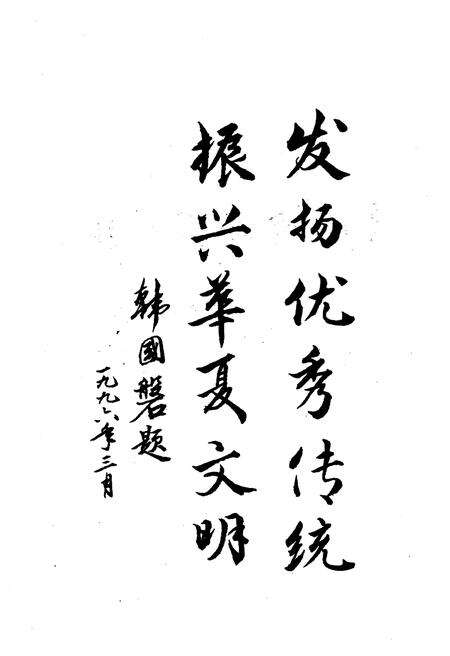 发扬优秀传统
振兴华夏文明
韩國磐题
一九九六年三月